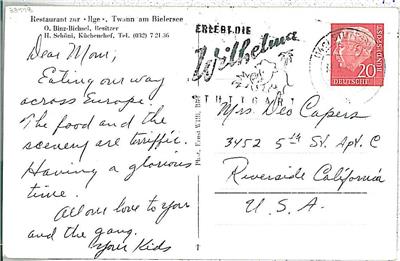 Restaurant zur «Ilge», Twann am Bielersee
O. Binz-Bichsel, Besitzer
H. Schöni, Küchenchef, Tel. (032) 7 21 36
Dear Mom;
Eating our way
across Europe.
The food and the
scenery are tirriffic.
Having a glorious
time.
All our love to you
and the gang.
Your Kids
Phot. Ernst Willi,
ERLEBT DIE
Wilhelma
STUTTGART
20
DEUTSCHE
BUNDESPOST
Mrs Deo Capers
3452 5th St. Apt. C
Riverside California
U. S. A.